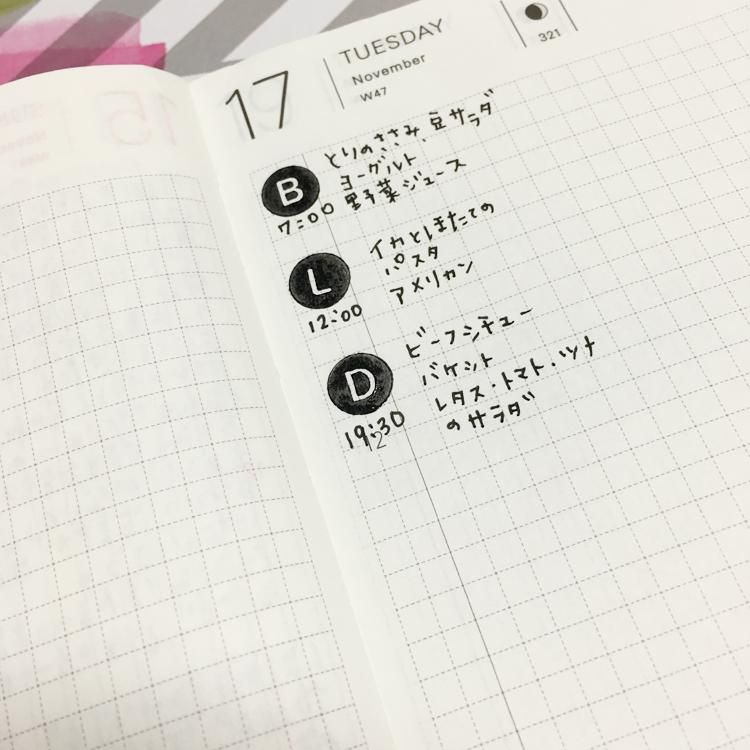 17
TUESDAY
November
W47
321
B
7:00
とりのささみ、豆サラダ
ヨーグルト
野菜ジュース
L
12:00
イカとほたての
パスタ
アメリカン
D
19:30
12
ビーフシチュー
バケット
レタス・トマト・ツナ
のサラダ